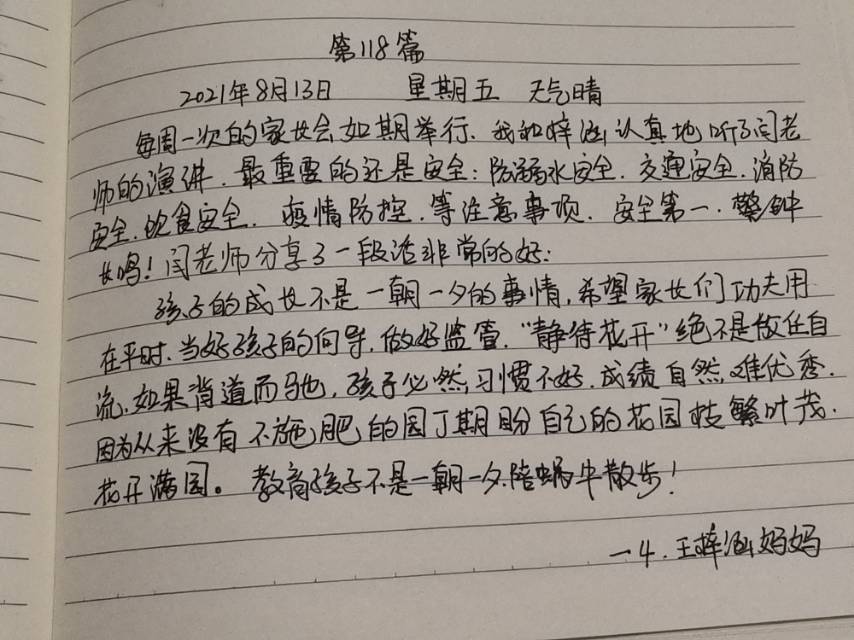 第118篇
2021年8月13日 星期五 天气晴
每周一次的家长会如期举行.我和梓涵认真地听了闫老
师的演讲.最重要的还是安全:防溺水安全.交通安全.消防
安全.饮食安全.疫情防控.等注意事项.安全第一.警钟
长鸣!闫老师分享了一段话非常的好:
孩子的成长不是一朝一夕的事情,希望家长们功夫用
在平时.当好孩子的向导.做好监管."静待花开"绝不是放任自
流.如果背道而驰,孩子必然习惯不好.成绩自然难优秀.
因为从来没有不施肥的园丁期盼自己的花园枝繁叶茂.
花开满园。教育孩子不是一朝一夕.陪蜗牛散步!
一4.王梓涵妈妈